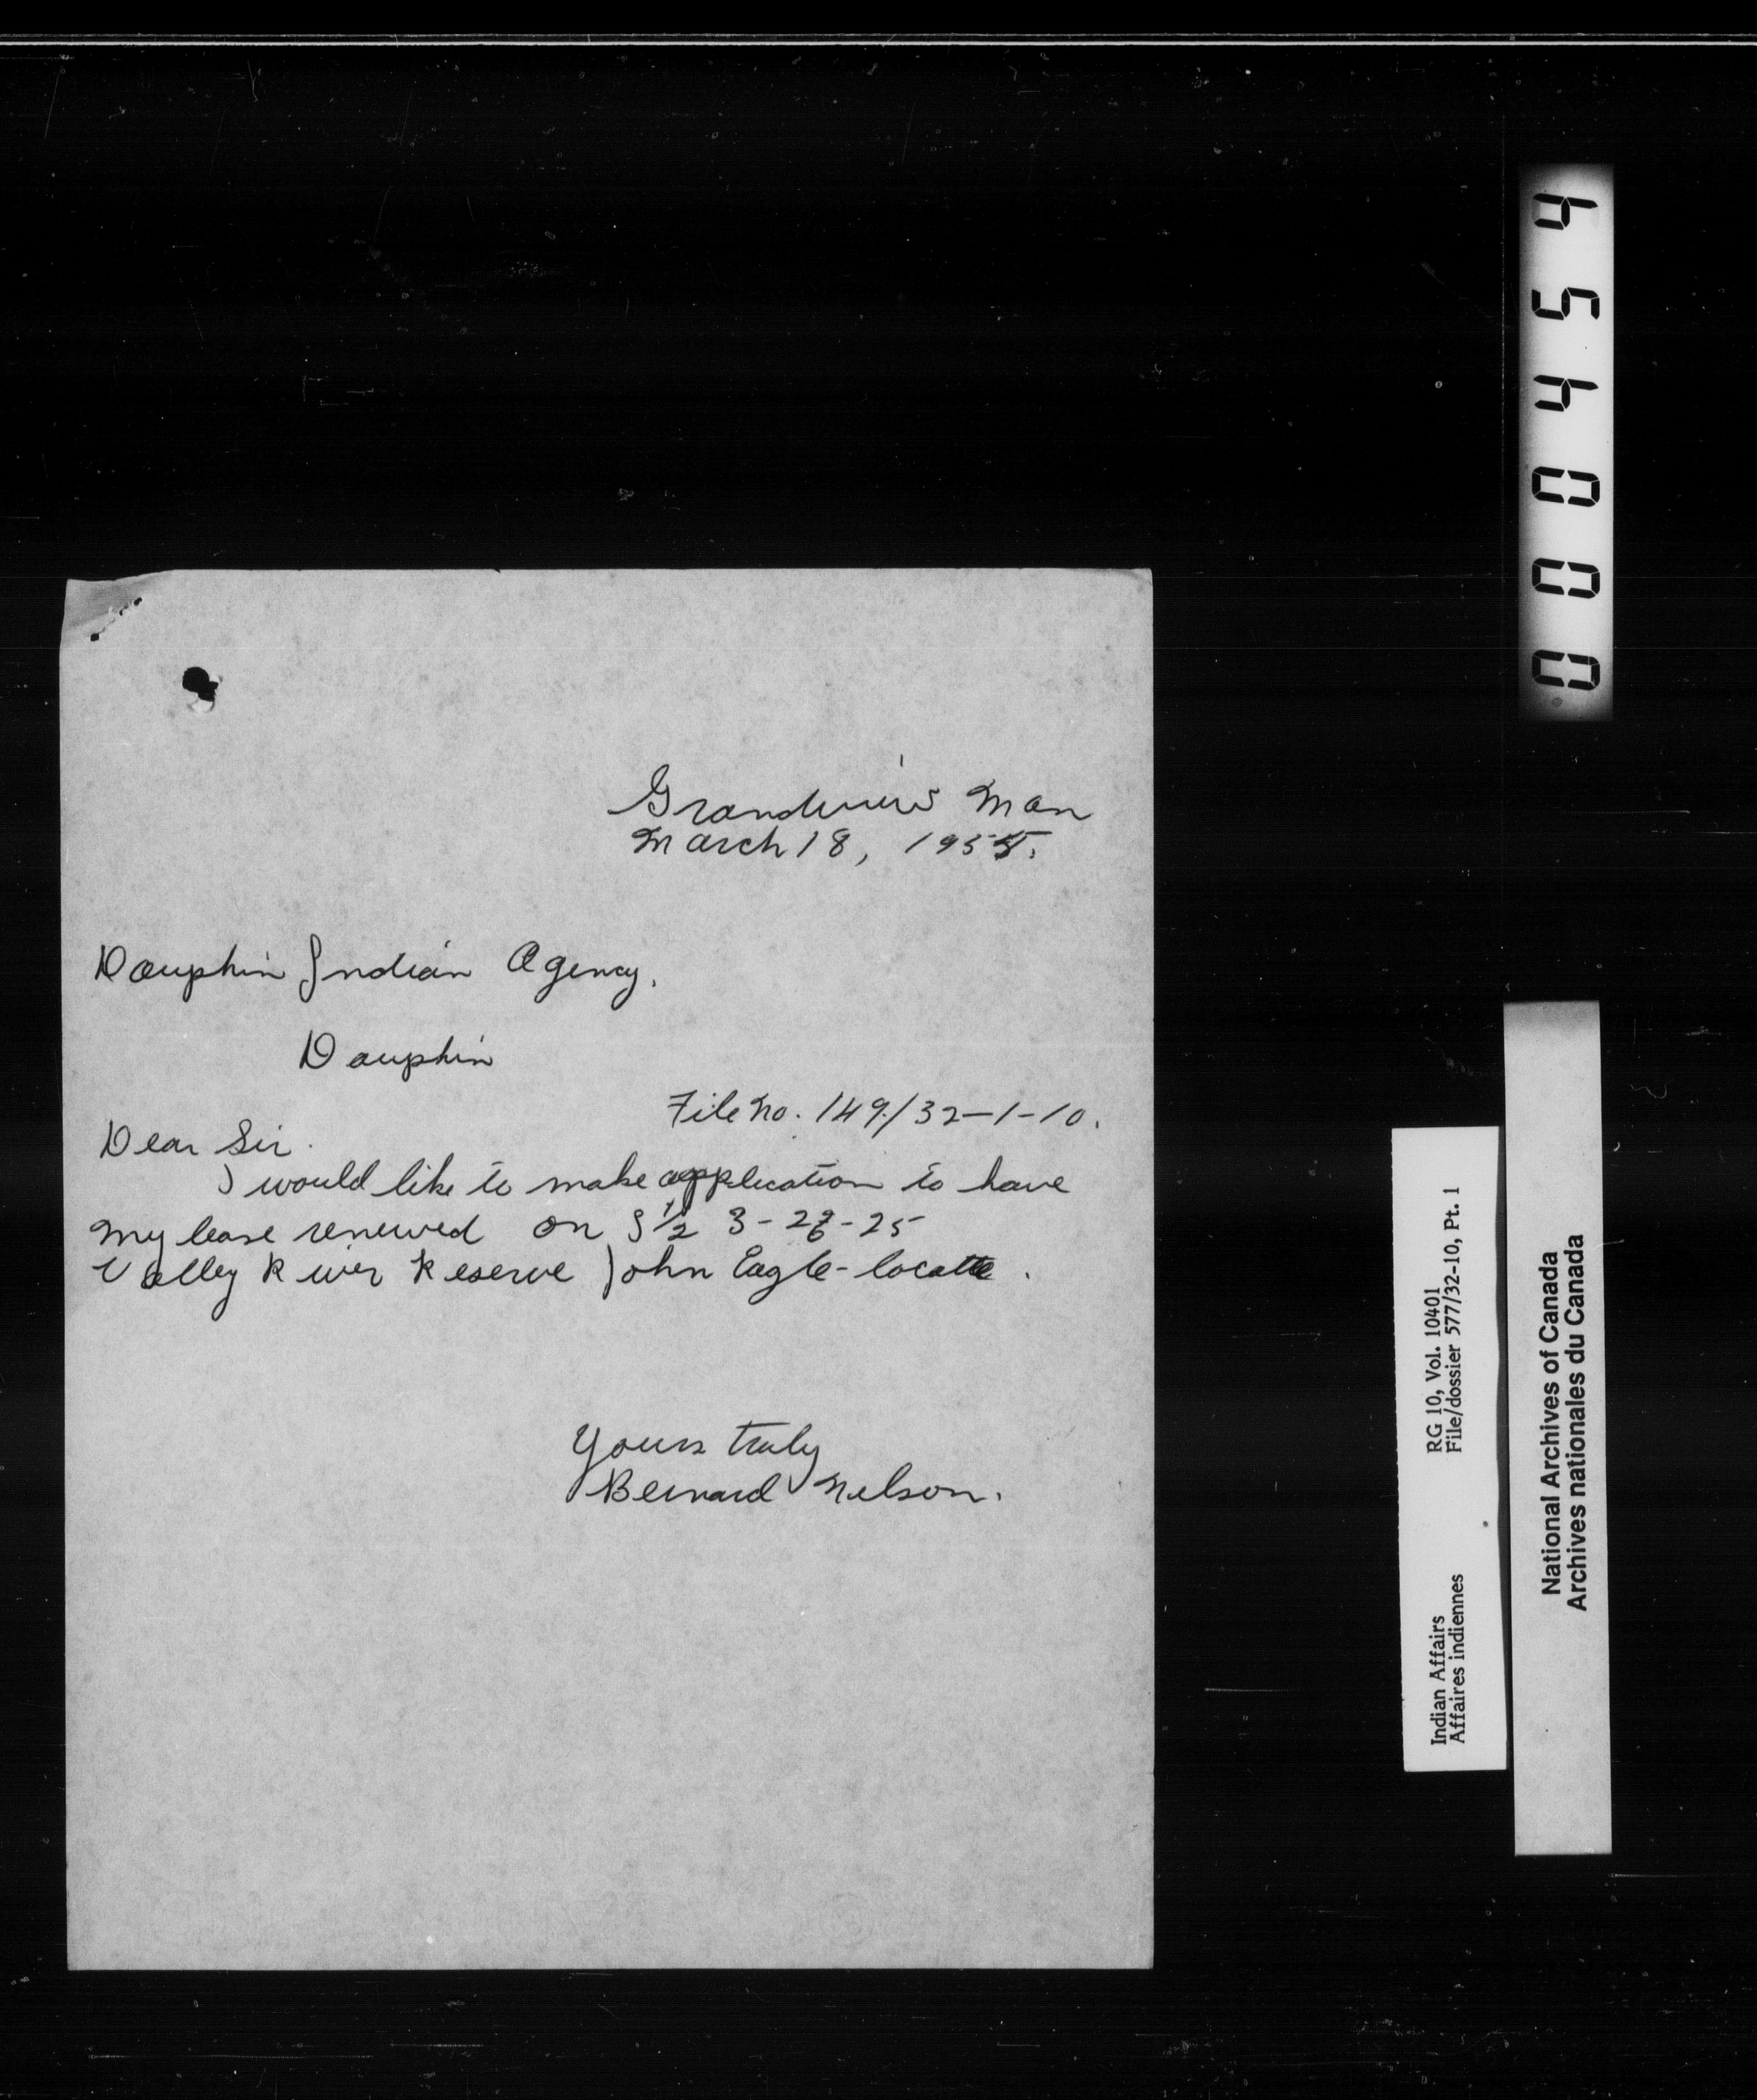 Grandview Man
March 18, 1955.
Dauphin Indian Agency.
Dauphin
File No. 149/32-1-10.
Dear Sir.
I would like to make application to have
my lease renewed on S 1/2 3-26-25
Valley River Reserve John Eagle-locatee.
Yours truly
Bernard Nelson.
000454
Indian Affairs RG 10, Vol. 10401
Affaires indiennes File/dossier 577/32-10, Pt. 1
National Archives of Canada
Archives nationales du Canada